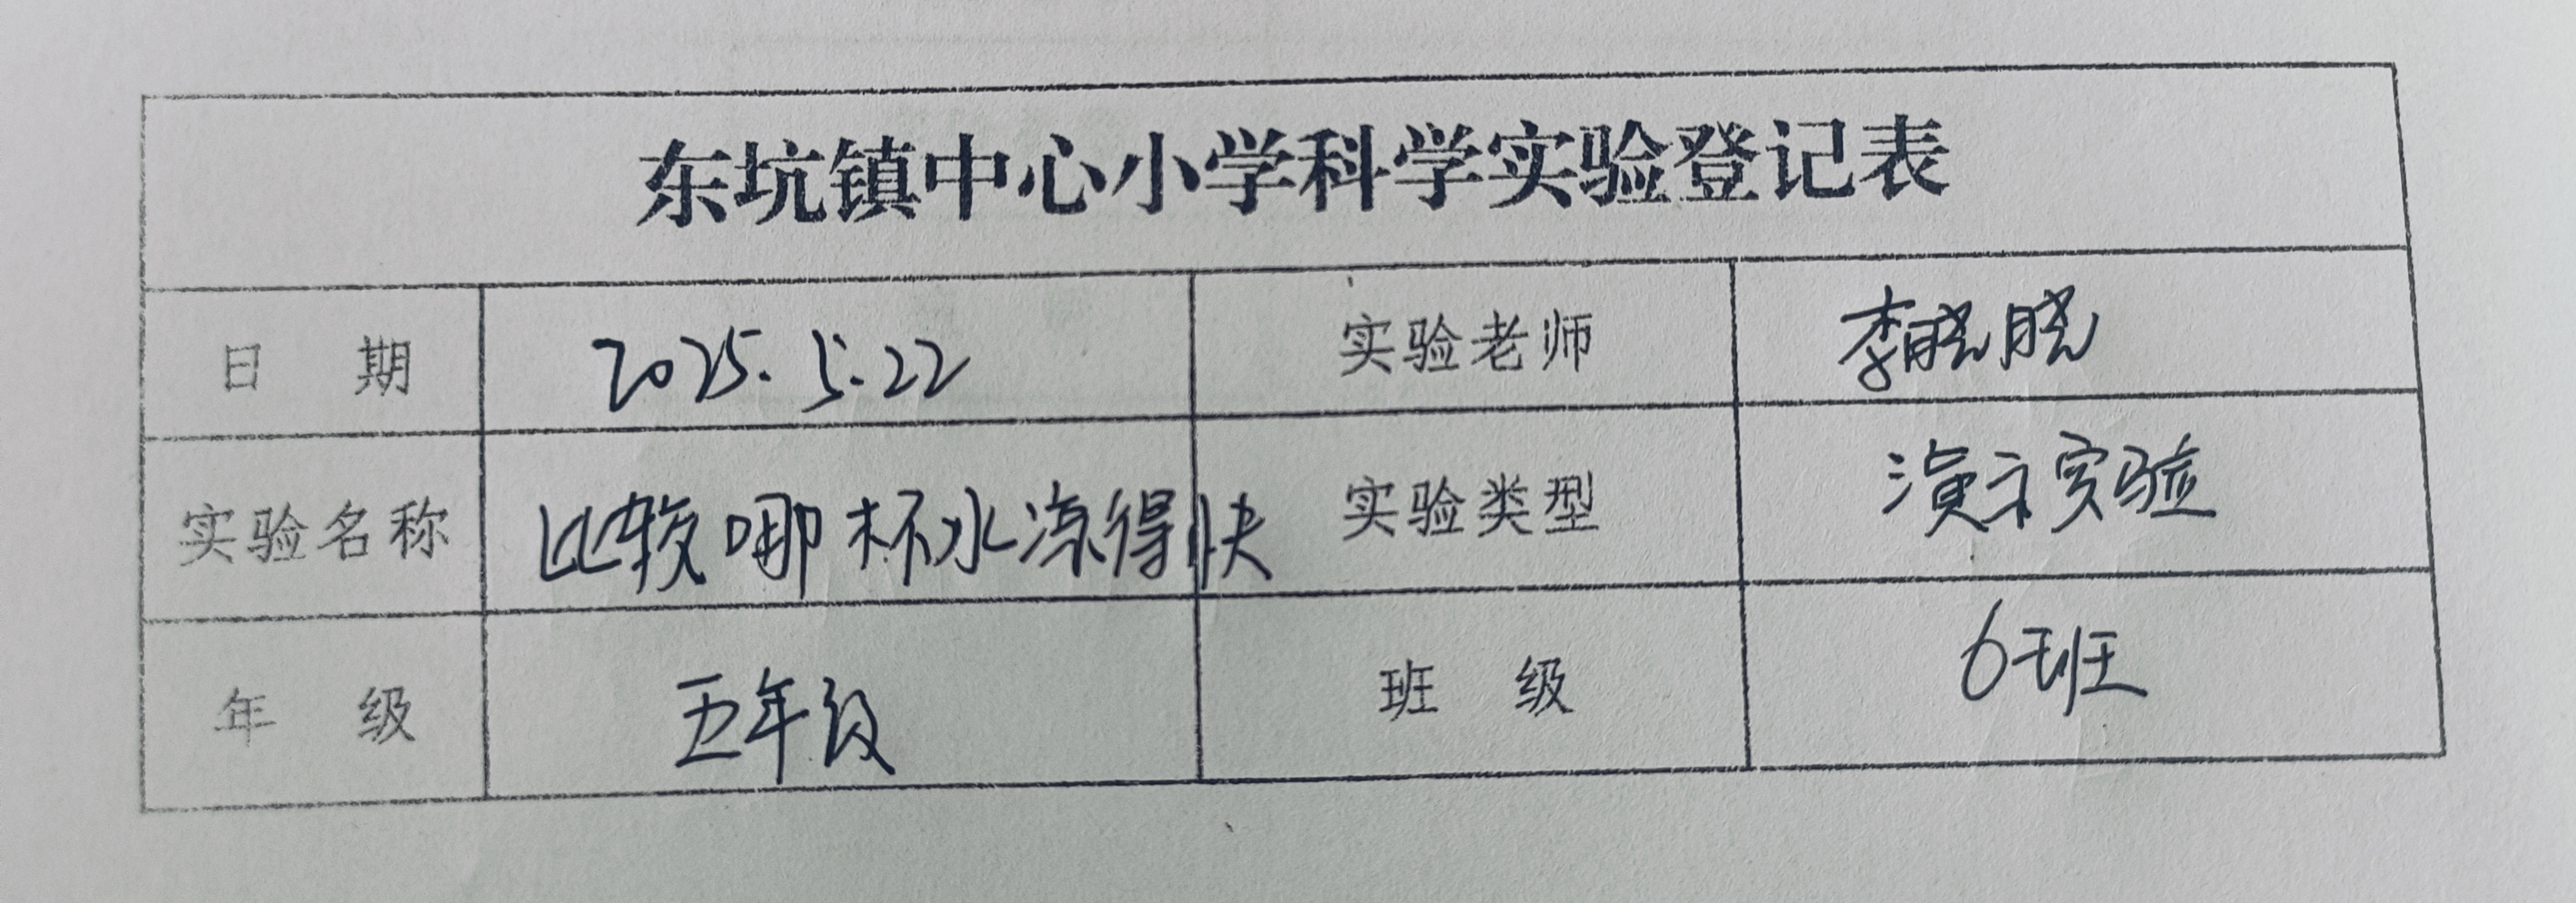 东坑镇中心小学科学实验登记表
日 期 2025.5.22 实验老师 李晓晓
实验名称 比较哪杯水冻得快 实验类型 演示实验
年 级 五年级 班 级 6班